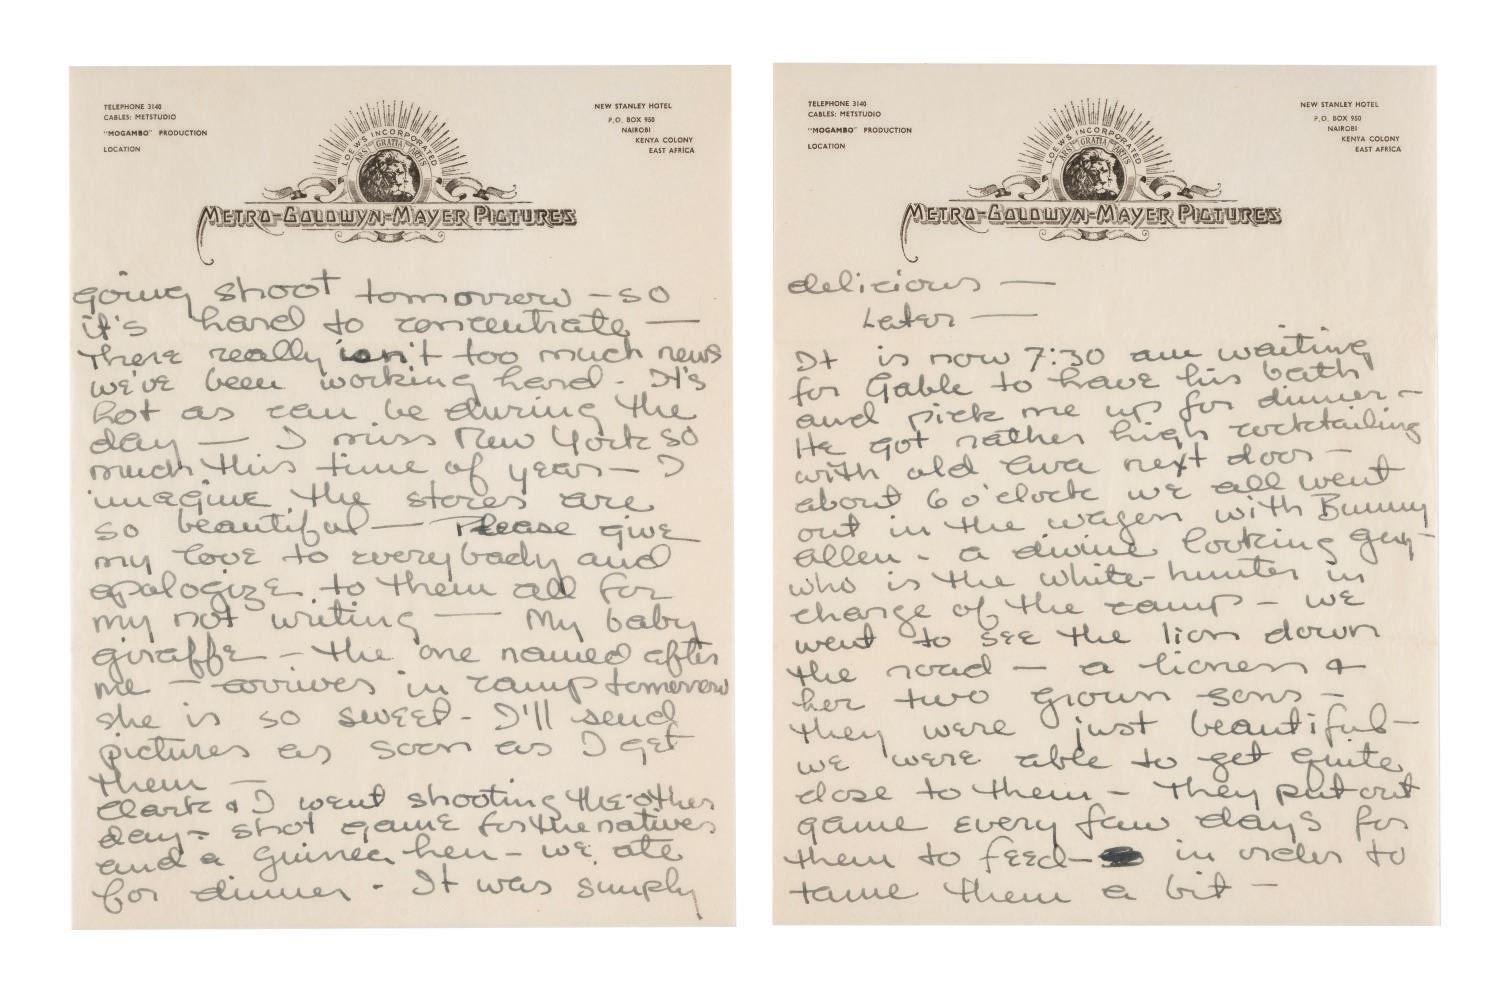 TELEPHONE 3140
CABLES: METSTUDIO
"MOGAMBO" PRODUCTION
LOCATION
NEW STANLEY HOTEL
P.O. BOX 950
NAIROBI
KENYA COLONY
EAST AFRICA
LOEW'S INCORPORATED
ARS GRATIA ARTIS
METRO-GOLDWYN-MAYER PICTURES
going shoot tomorrow – so
it's hard to concentrate —
There really isn't too much news
we've been working hard - It's
hot as can be during the
day — I miss New York so
much this time of year – I
imagine the stores are
so beautiful — Please give
my love to everybody and
apologize to them all for
my not writing — My baby
giraffe – the one named after
me – arrives in camp tomorrow
she is so sweet - I'll send
pictures as soon as I get
them —
Clark & I went shooting the other
day - shot game for the natives
and a guinea hen – we ate
for dinner - It was simply
TELEPHONE 3140
CABLES: METSTUDIO
"MOGAMBO" PRODUCTION
LOCATION
NEW STANLEY HOTEL
P.O. BOX 950
NAIROBI
KENYA COLONY
EAST AFRICA
LOEW'S INCORPORATED
ARS GRATIA ARTIS
METRO-GOLDWYN-MAYER PICTURES
delicious —
Later —
It is now 7:30 am waiting
for Gable to have his bath
and pick me up for dinner –
He got rather high cocktailing
with old Ava next door –
about 6 o'clock we all went
out in the wagon with Bunny
Allen - a divine looking guy –
who is the white-hunter in
charge of the camp – we
went to see the lion down
the road – a lioness &
her two grown sons –
they were just beautiful –
we were able to get quite
close to them – They put out
game every few days for
them to feed – in order to
tame them a bit –